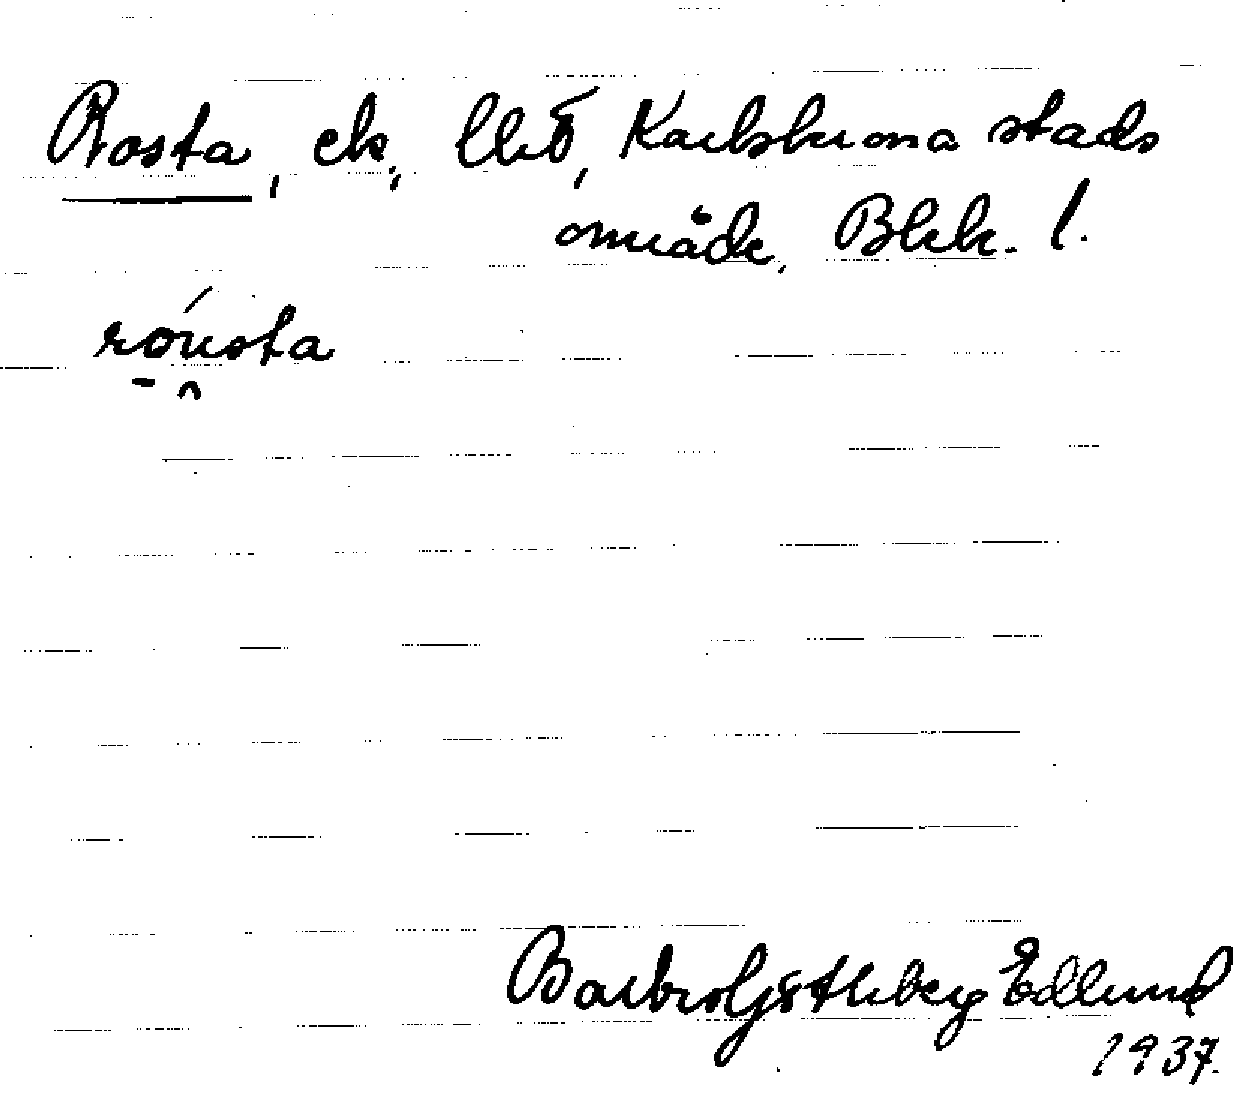 Rosta, ek, Utö, Karlskrona stads
område, Blek. l.
róu̯sta
Barbro Söderberg Edlund
1937.